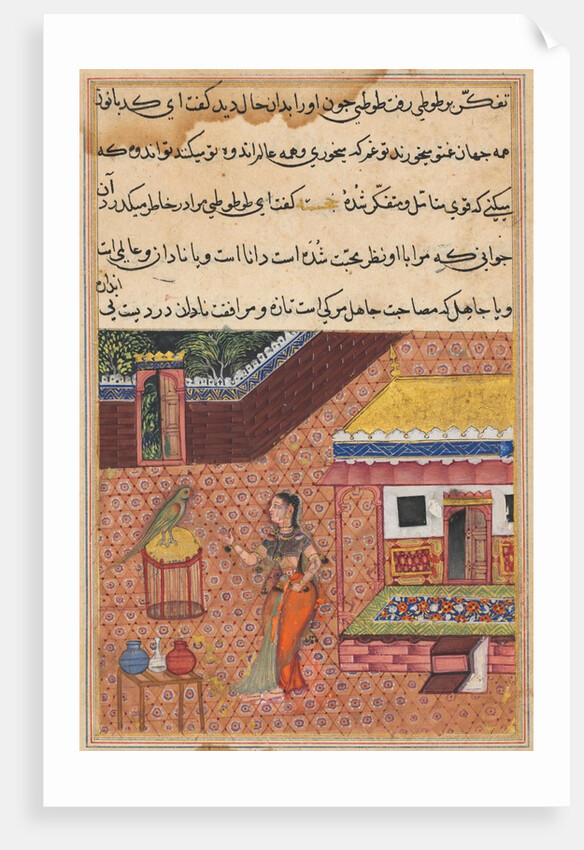 تفکّن بر طوطی رفت طوطی چون اورا بدان حال دید کفت ای کدبانو
همه جهان غم تو میخورند تو غم که میخوری و همه عالم اندوه تو میکنند تو اندوه که
میکنی که قوی متامّل و متفکر شدهٔ خجسته کفت ای طوطی مرا در خاطر میکدرد آن
جوانی که مرا با او نظر محبّت شده است دانا است و یا نادان و عالمی است
و یا جاهل که مصاحبت جاهل مرکی است تازه و مرافقت نادان دردیست بی
اندازه